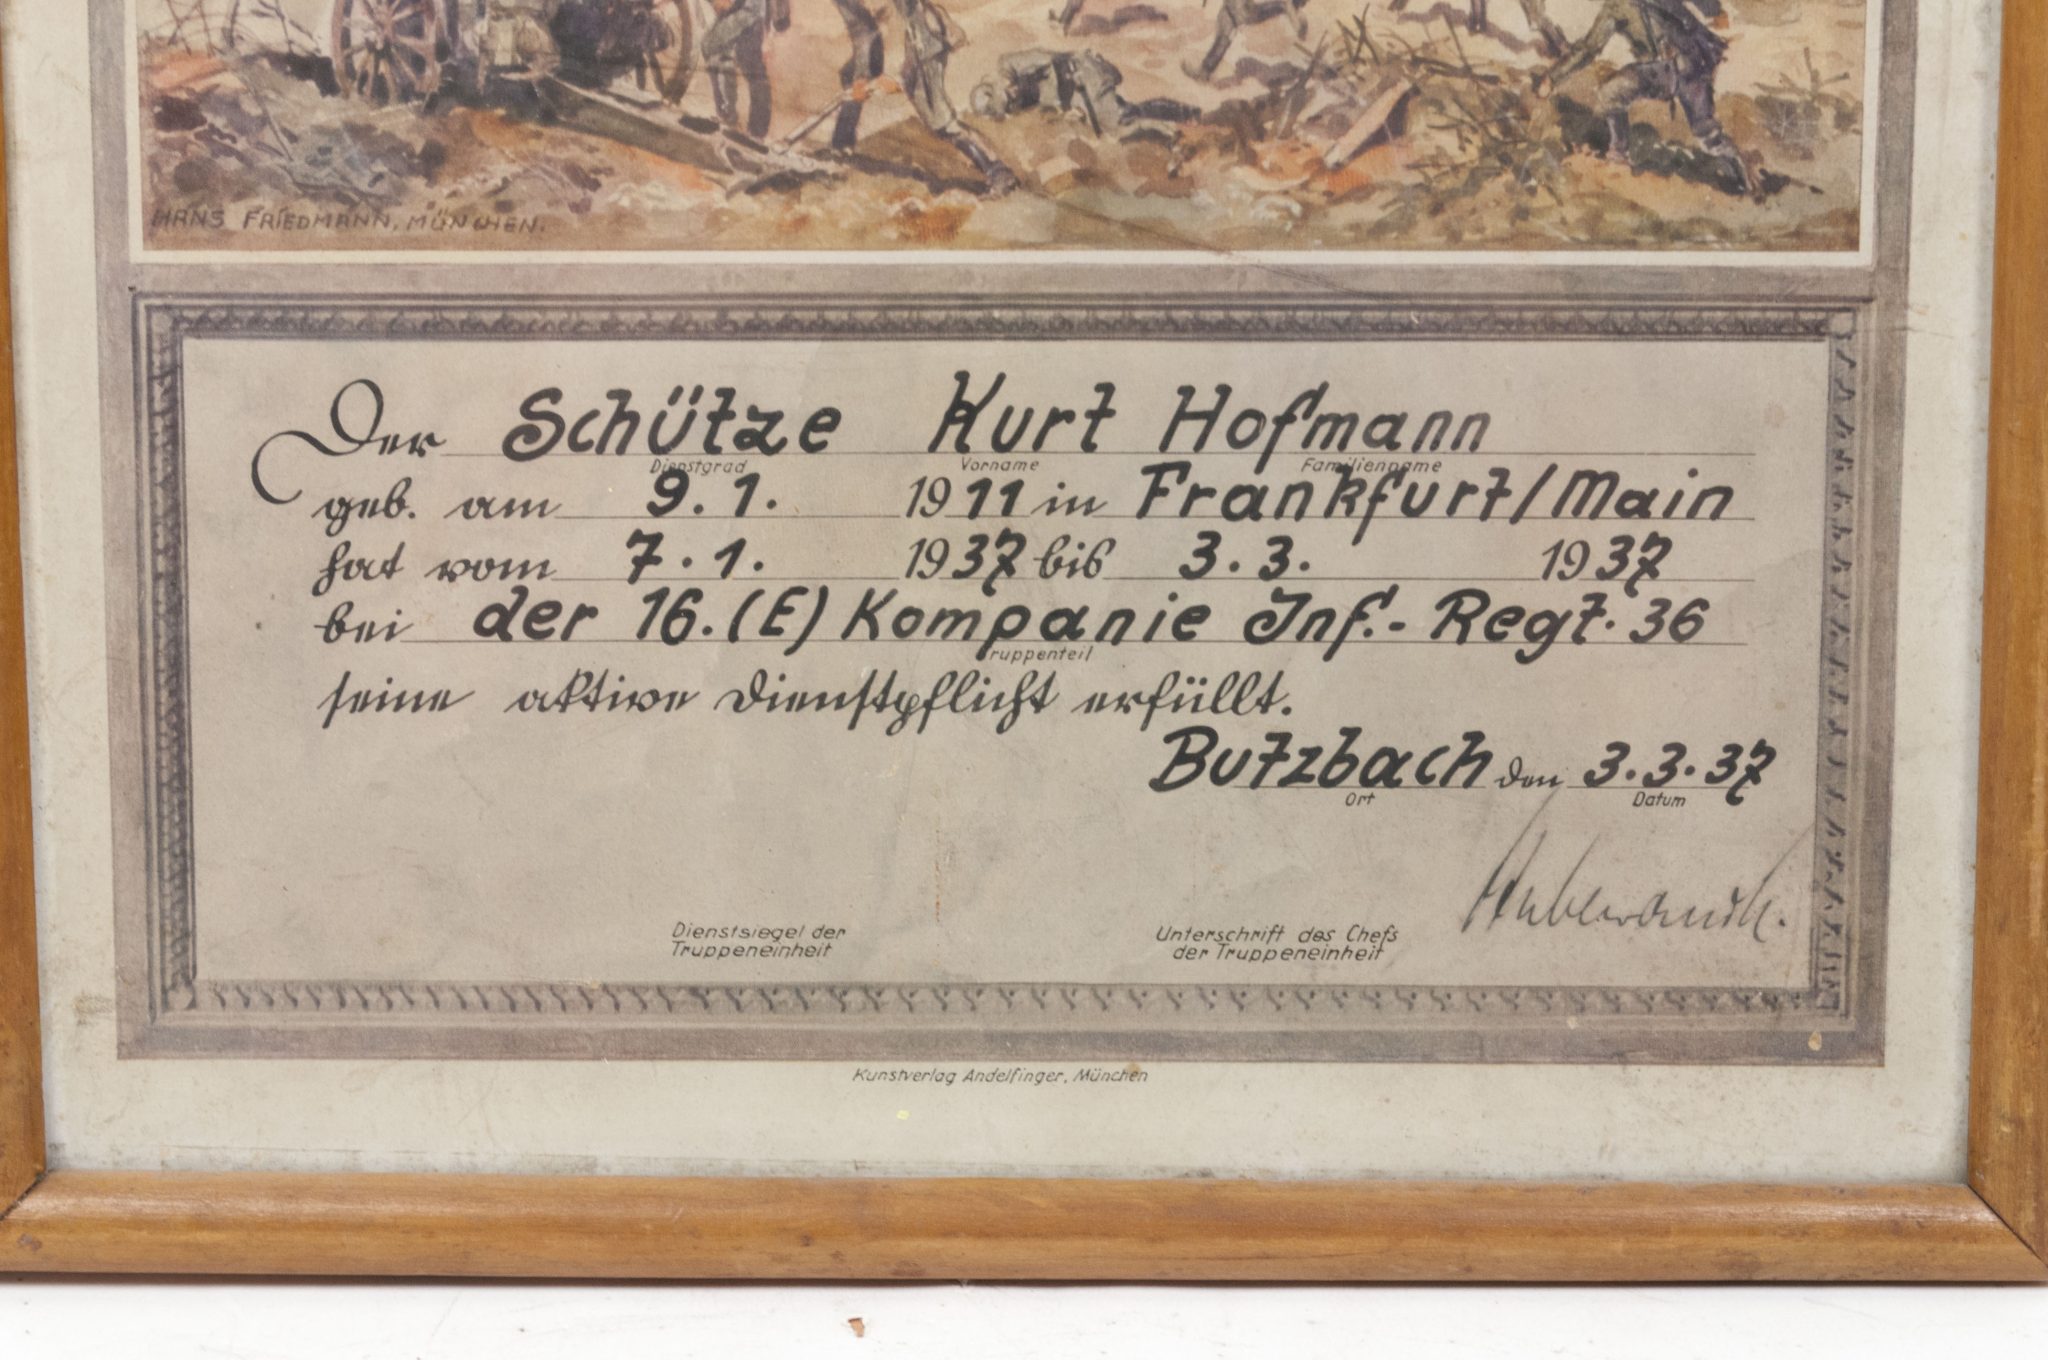 HANS FRIEDMANN, MÜNCHEN.
Der Schütze Kurt Hofmann
Dienstgrad Vorname Familienname
geb. am 9.1. 1911 in Frankfurt/Main
hat vom 7.1. 1937 bis 3.3. 1937
bei der 16.(E) Kompanie Inf.-Regt. 36
Truppenteil
seine aktive Dienstpflicht erfüllt.
Butzbach den 3.3.37
Ort Datum
Dienstsiegel der
Truppeneinheit
Unterschrift des Chefs
der Truppeneinheit
Kunstverlag Andelfinger, München